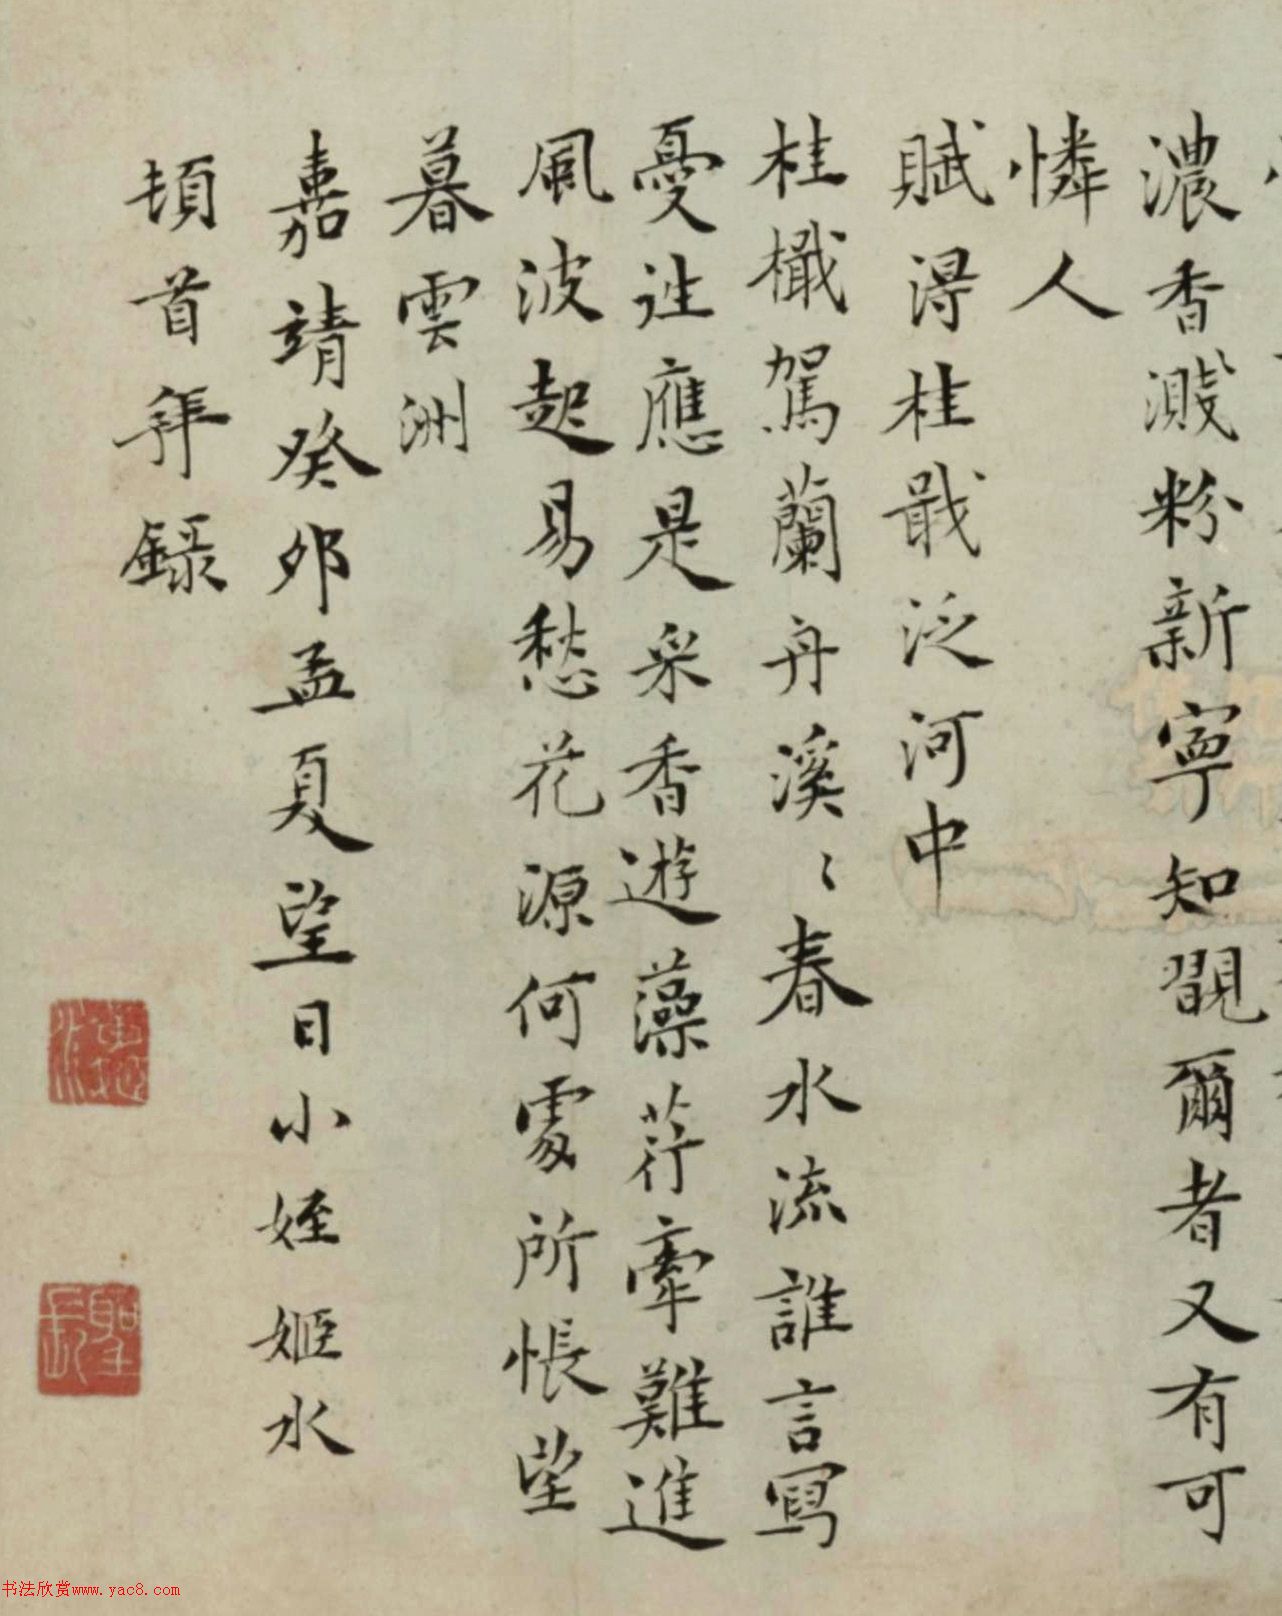 濃香濺粉新寧知覯爾者又有可
憐人
賦得桂戢泛河中
桂檝駕蘭舟溪〻春水流誰言寫
憂迬應是采香遊藻荇牽難進
風波起易愁花源何處所悵望
暮雲洲
嘉靖癸卯孟夏望日小姪姬水
頓首拜錄
書法欣赏www.yac8.com